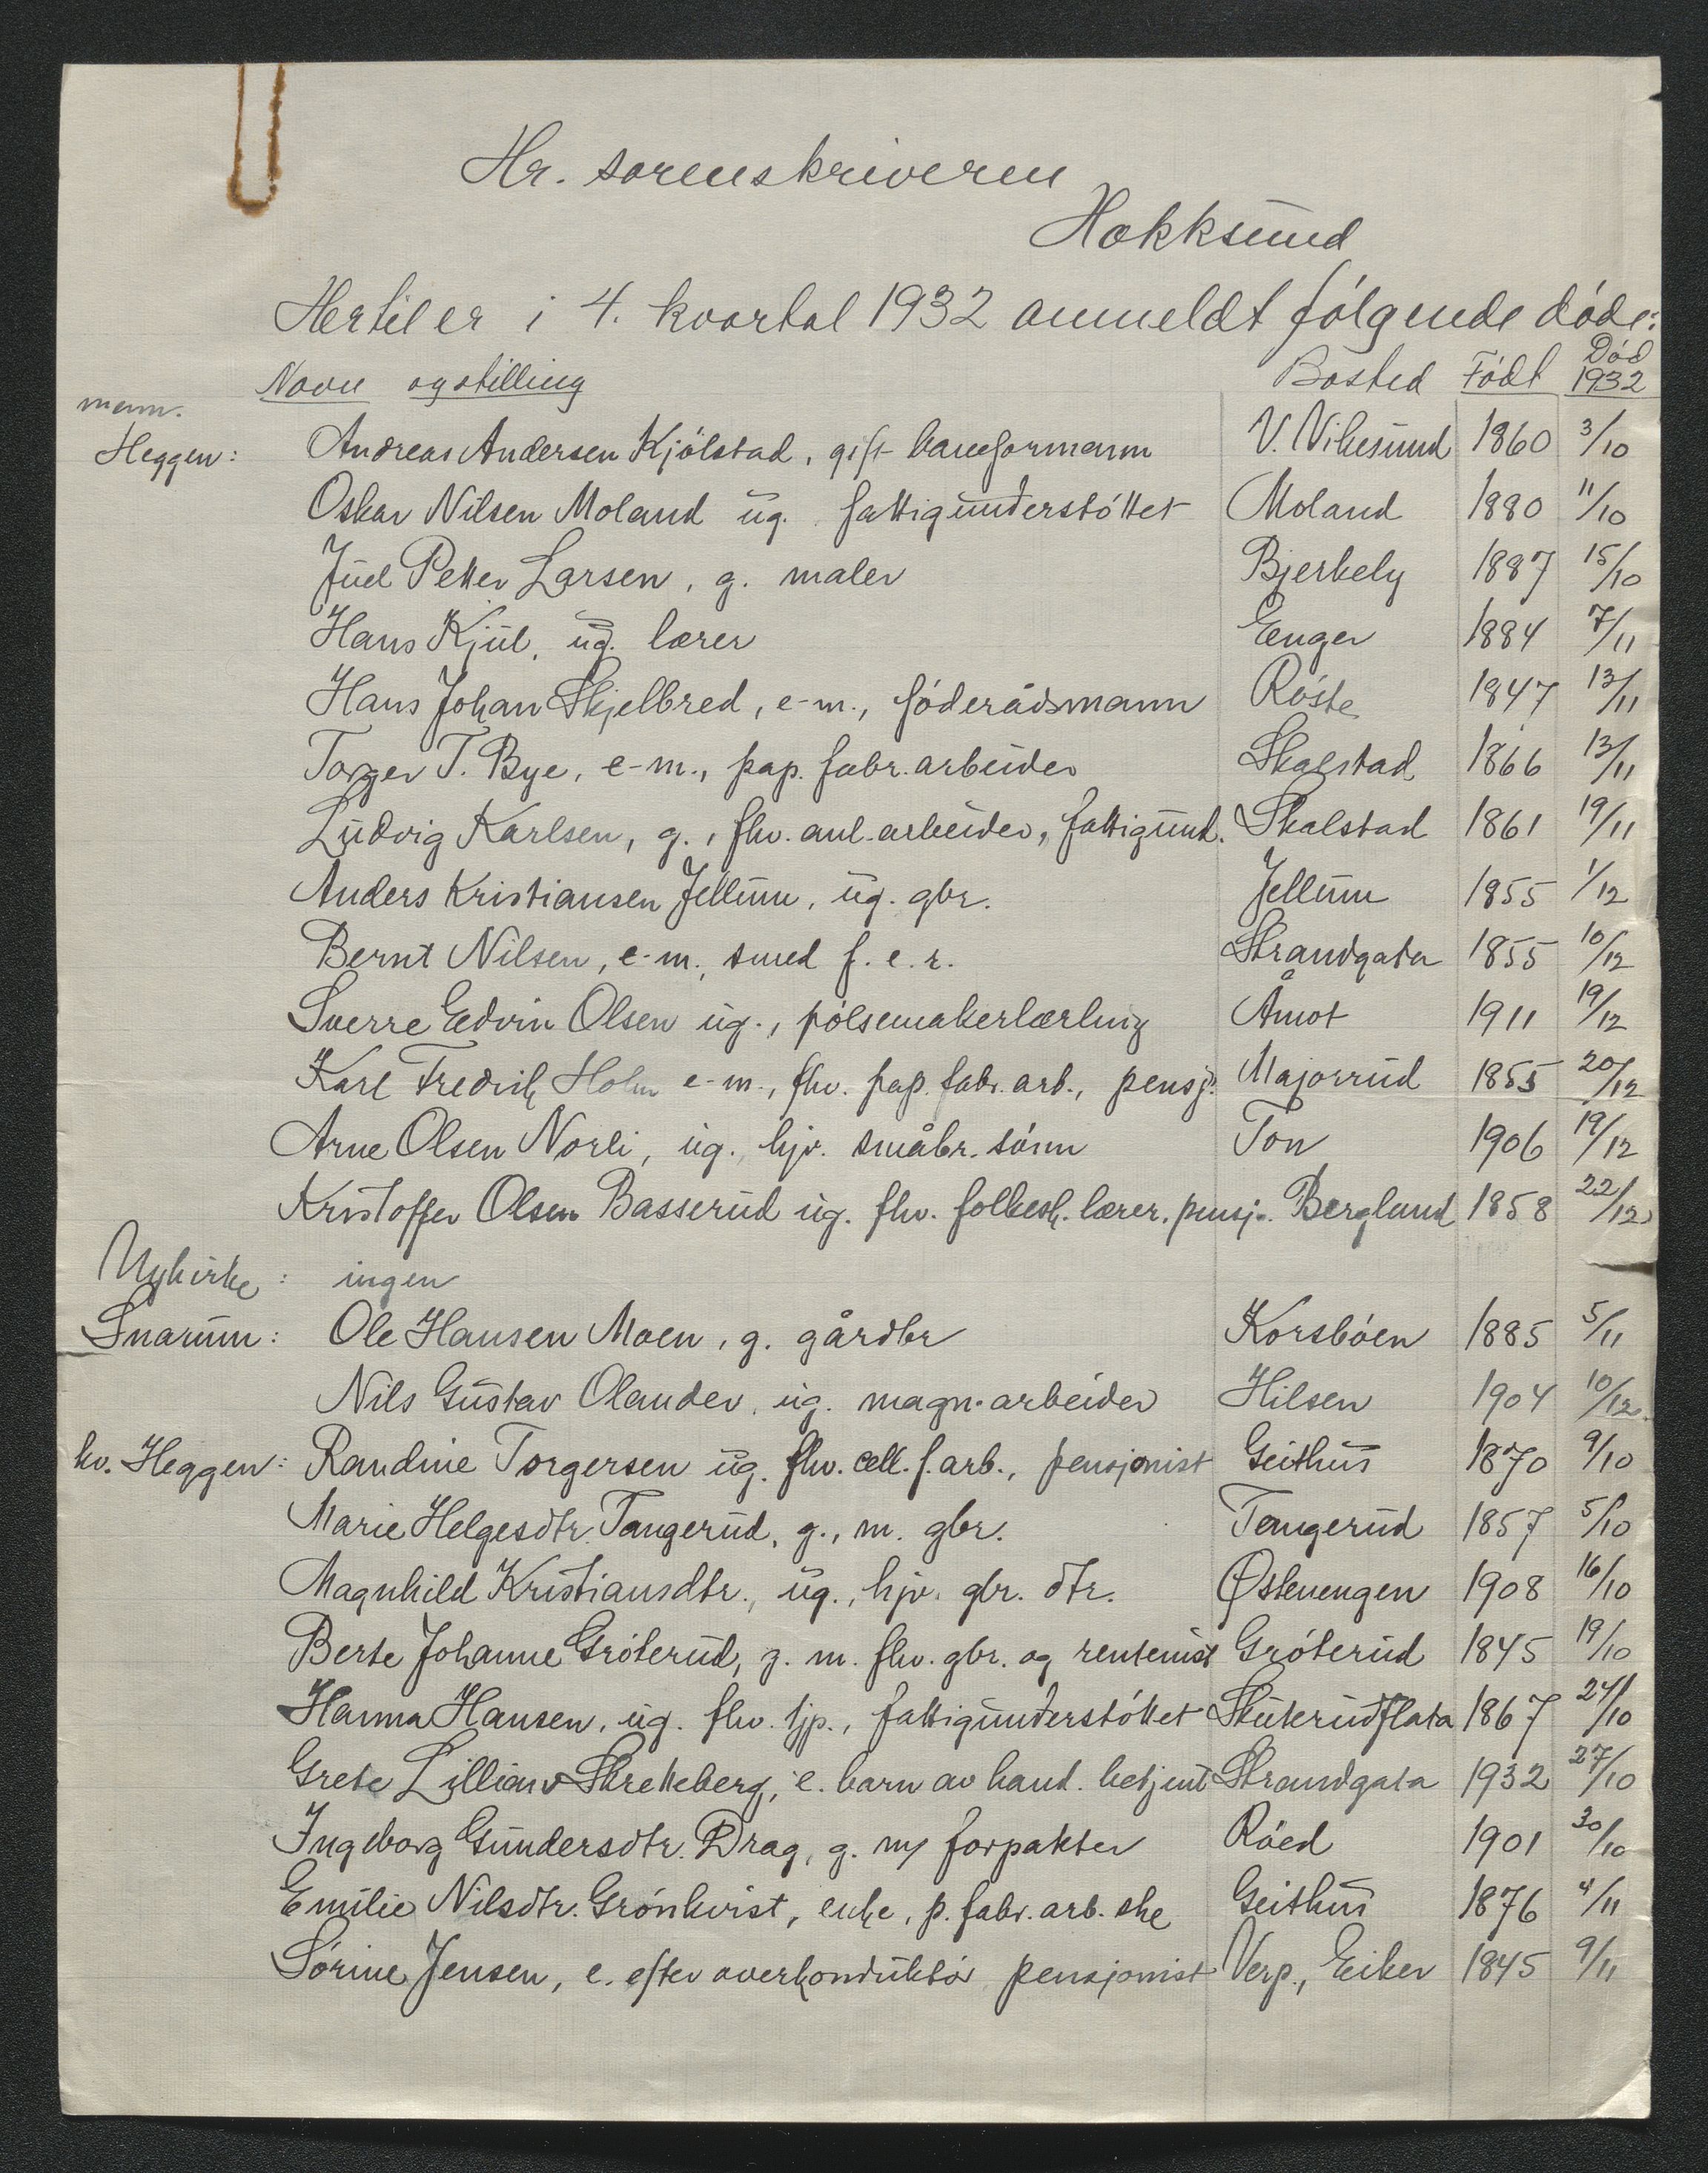 Hr. sorenskriveren
Hokksund
Hertil er i 4. kvartal 1932 anmeldt følgende døde:
Navn og stilling Bosted Født Død 1932
menn.
Heggen: Andreas Andersen Kjølstad, gift baneformann V. Vikesund 1860 3/10
Oskar Nilsen Moland ug. fattigunderstøttet Moland 1880 11/10
Juel Petter Larsen, g. maler Bjerkely 1887 15/10
Hans Kjul, ug. lærer Enger 1884 7/11
Hans Johan Skjelbred, e-m., føderådsmann Røste 1847 13/11
Torger T. Bye, e-m., pap. fabr. arbeider Skalstad 1866 13/11
Ludvig Karlsen, g., fhv. anl. arbeider, fattigund. Skalstad 1861 19/11
Anders Kristiansen Jellum, ug. gbr. Jellum 1855 1/12
Bernt Nilsen, e-m., smed f. e. r. Strandgata 1855 10/12
Sverre Edvin Olsen ug., pølsemakerlærling Åmot 1911 19/12
Karl Fredrik Holm e-m., fhv. pap. fabr. arb., pensj. Majorrud 1855 20/12
Arne Olsen Norli, ug., hjv. småbr. sønn Ton 1906 19/12
Kristoffer Olsen Basserud ug. fhv. folkesk. lærer, pensj. Berglund 1858 22/12
Nykirke: ingen
Snarum: Ole Hansen Moen, g. gårdbr Korsbøen 1885 5/11
Nils Gustav Olander, ug. magn. arbeider Hilsen 1904 10/12.
kv. Heggen: Randine Torgersen ug. fhv. cell. f. arb., pensjonist Geithus 1870 9/10
Marie Helgesdtr. Tangerud, g., m. gbr. Tangerud 1857 5/10
Magnhild Kristiansdtr., ug., hjv. gbr. dtr. Østenengen 1908 16/10
Berte Johanne Grøterud, g. m. fhv. gbr. og rentenist Grøterud 1845 19/10
Hanna Hansen, ug. fhv. tjp., fattigunderstøttet Skuterudflata 1867 24/10
Grete Lillian Skretteberg, e. barn av hand. betjent Strandgata 1932 27/10
Ingeborg Gundersdtr. Drag, g. m/ forpakter Røed 1901 30/10
Emilie Nilsdtr. Grønkvist, enke, p. fabr. arb. ske Geithus 1876 4/11
Sørine Jensen, e. efter overkonduktør pensjonist Verp., Eiker 1845 9/11